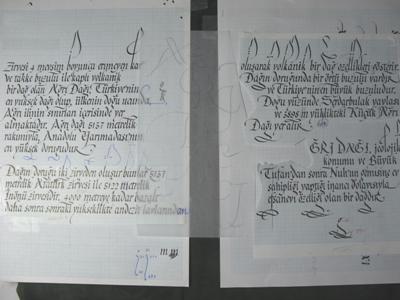 Zirvesi 4 mevsim boyunca erimeyen kar
ve takke buzulu ile kaplı volkanik
bir dağ olan Ağrı Dağı! Türkiye'nin
en yüksek dağı olup, ülkenin doğu ucunda
Ağrı ilinin sınırları içerisinde yer
almaktadır. Ağrı dağı 5137 metrelik
rakımıyla, Anadolu Yarımadası'nın
en yüksek doruğudur.
Dağın doruğu iki zirveden oluşur bunlar 5137
metrelik Atatürk zirvesi ile 5122 metrelik
İnönü zirvesidir. 4000 metreye kadar bazalt
daha sonra yükseklikte andezit lavlarından
mm
oluşarak volkanik bir dağ özelliği gösterir.
Dağın doruğunda bir örtü buzulu vardır
ve Türkiye'nin büyük buzuludur.
Doğu yüzünde Serdarbulak yaylası
ve 3896 m yükseklikteki Küçük Ağrı
Dağı yer alır.
AĞRI DAĞI, jeolojik
konumu ve Büyük
Tufan'dan sonra Nuh'un gemisine ev
sahipliği yaptığı inancı dolayısıyla,
efsanevi özelliği olan bir dağdır.